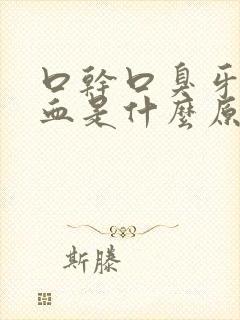 口幹口臭牙
血是什麼原
斯滕